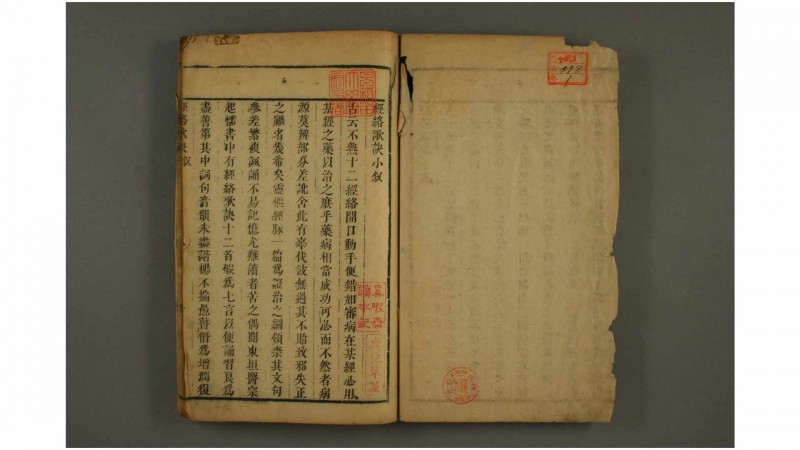 經絡歌訣小敘
古云不熟十二經絡開口動手便錯如審病在某經必用
某經之藥以治之庶乎藥病相當成功可必而不然者病
源莫辨部分差訛舍此有辜伐彼無過其不貽致邪失正
之禍者幾希矣靈樞經脉一篇為證治之綱領柰其文句
參差繁複諷誦不易記憶尤難讀者苦之偶閱東垣醫宗
起懦書中有經絡歌訣十二首假為七言以便誦習良為
盡善第其中詞句音韻未盡諧暢不揣愚瞽僭為增潤復
經絡歌訣敘
498
1